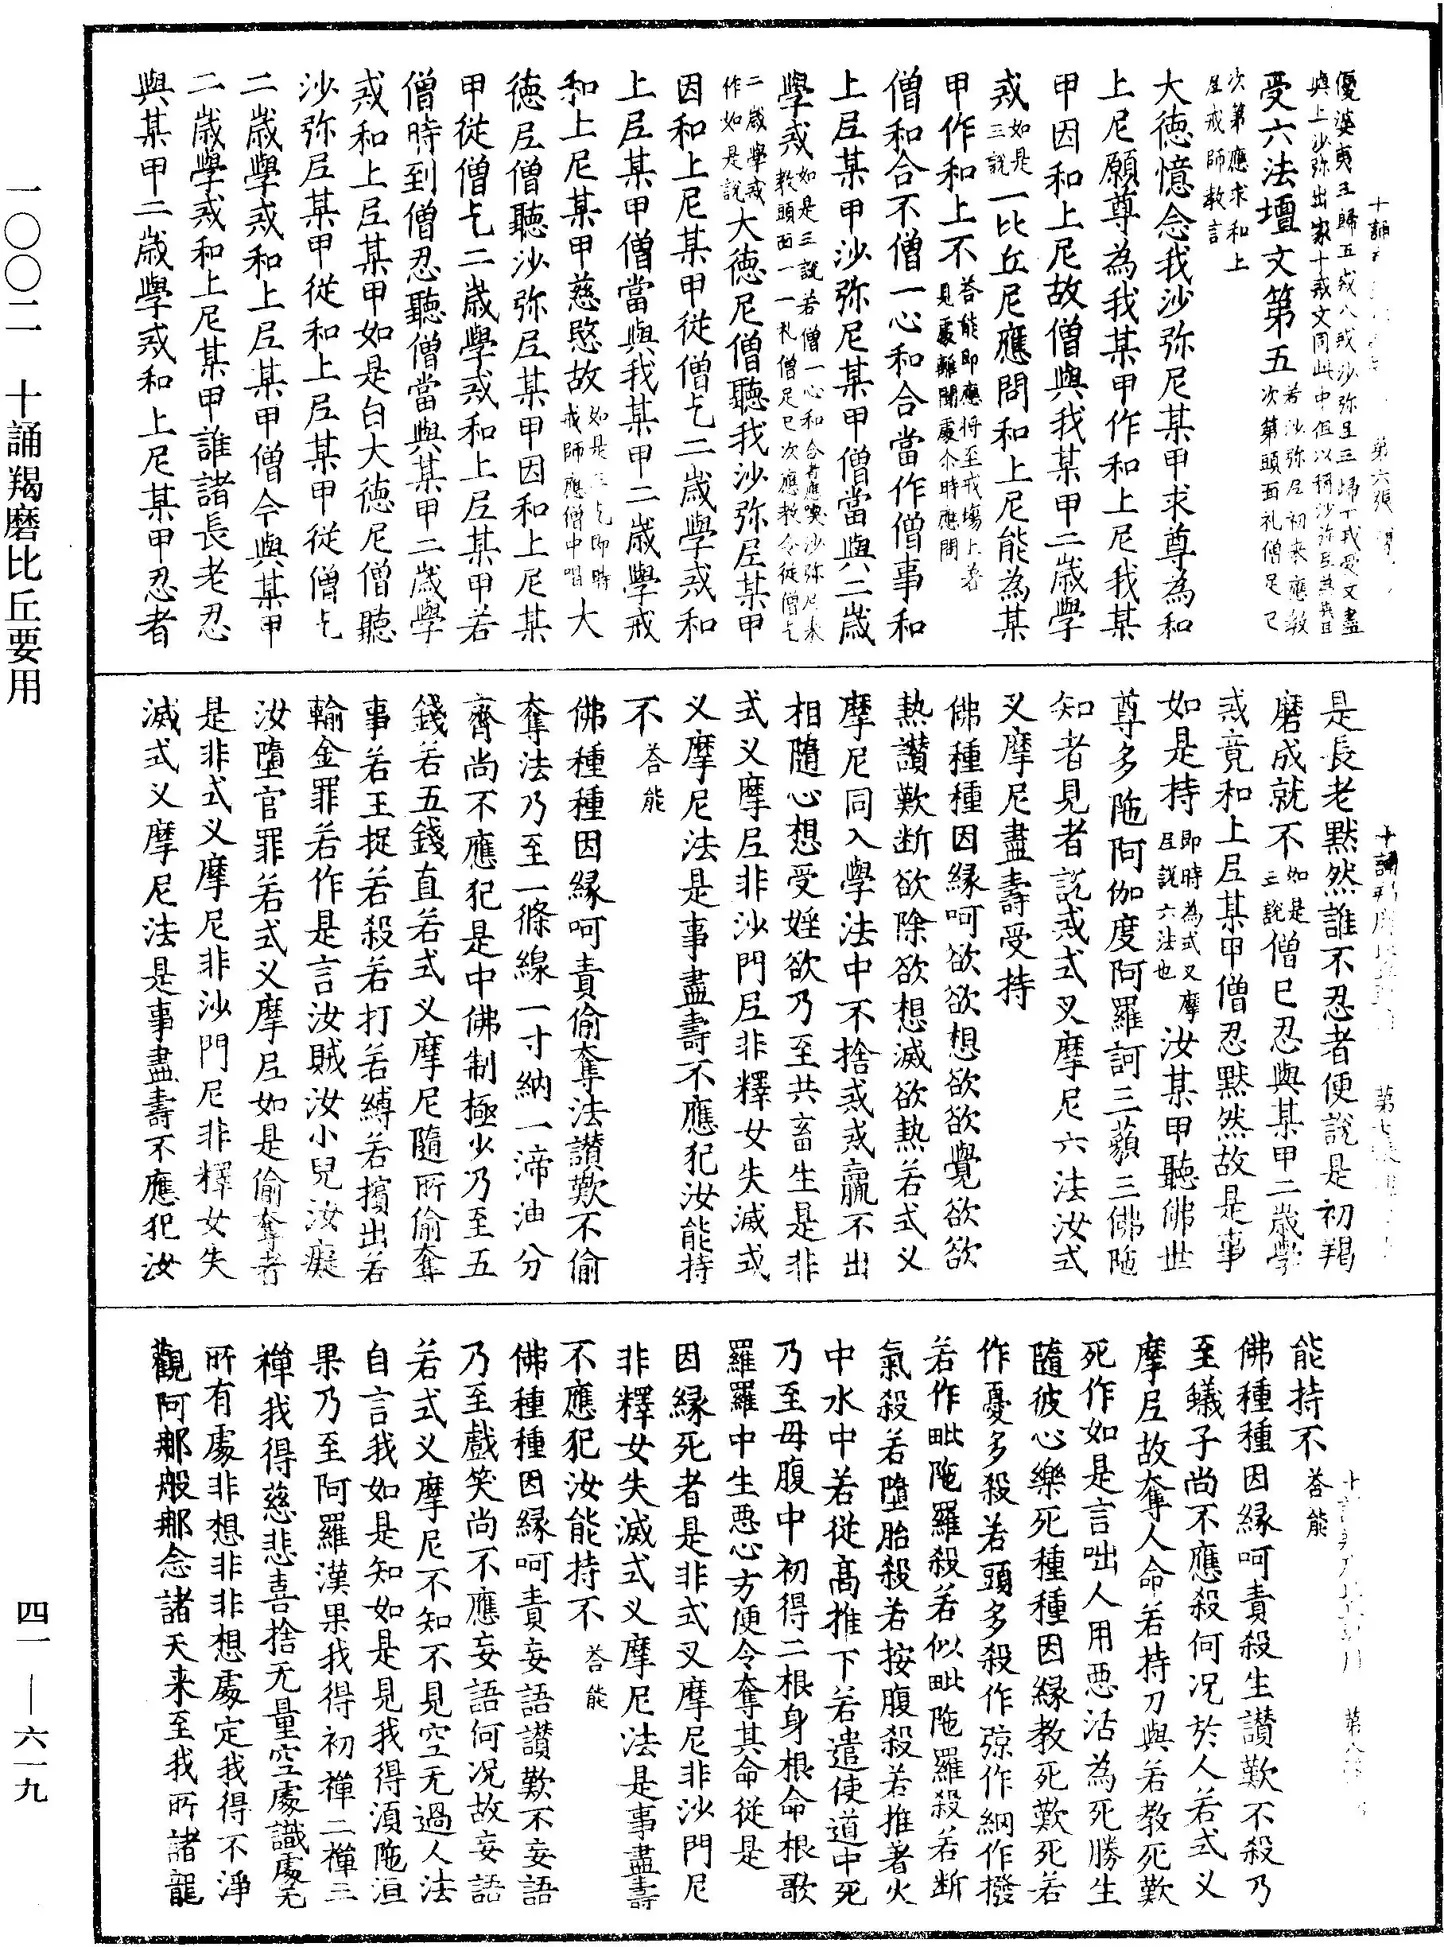 優婆夷三歸五戒八戒沙弥尼三歸十戒受文盡
與上沙弥出家十戒文同此中但以稱沙弥尼為異耳
受六法壇文第五 若沙弥尼初来應教次第頭面礼僧足已
次第應求和上尼戒師教言
大德憶念我沙弥尼某甲求尊為和
上尼願尊為我某甲作和上尼我某
甲因和上尼故僧與我某甲二歲學
戒 如是三說 一比丘尼應問和上尼能為某
甲作和上不 答能即應將至戒場上著見處離聞處尒時應問
僧和合不僧一心和合當作僧事和
上尼某甲沙弥尼某甲僧當與二歲
學戒 如是三說若僧一心和合者應喚沙弥尼来教頭面一一礼僧足已次應教令從僧乞
二歲學戒作如是說 大德尼僧聽我沙弥尼某甲
因和上尼某甲從僧乞二歲學戒和
上尼某甲僧當與我某甲二歲學戒
和上尼某甲慈愍故 如是三乞即時戒師應僧中唱 大
德尼僧聽沙弥尼某甲因和上尼某
甲從僧乞二歲學戒和上尼某甲若
僧時到僧忍聽僧當與某甲二歲學
戒和上尼某甲如是白大德尼僧聽
沙弥尼某甲從和上尼某甲從僧乞
二歲學戒和上尼某甲僧今與某甲
二歲學戒和上尼某甲誰諸長老忍
與某甲二歲學戒和上尼某甲忍者
是長老黙然誰不忍者便說是初羯
磨成就不 如是三說 僧已忍與某甲二歲學
戒竟和上尼某甲僧忍黙然故是事
如是持 即時為式叉摩尼說六法也 汝某甲聽佛世
尊多陁阿伽度阿羅訶三藐三佛陁
知者見者說戒式叉摩尼六法汝式
叉摩尼盡壽受持
佛種種因緣呵欲欲想欲欲覺欲欲
熱讃歎断欲除欲想滅欲熱若式叉
摩尼同入學法中不捨戒戒羸不出
相隨心想受婬欲乃至共畜生是非
式叉摩尼非沙門尼非釋女失滅式
叉摩尼法是事盡壽不應犯汝能持
不 荅能
佛種種因緣呵責偷奪法讃歎不偷
奪法乃至一條線一寸納一渧油分
齊尚不應犯是中佛制極少乃至五
錢若五錢直若式叉摩尼隨所偷奪
事若王捉若殺若打若縛若擯出若
輸金罪若作是言汝賊汝小兒汝癡
汝墮官罪若式叉摩尼如是偷奪者
是非式叉摩尼非沙門尼非釋女失
滅式叉摩尼法是事盡壽不應犯汝
能持不 荅能
佛種種因緣呵責殺生讃歎不殺乃
至蟻子尚不應殺何況於人若式叉
摩尼故奪人命若持刀與若教死歎
死作如是言咄人用惡活為死勝生
隨彼心樂死種種因緣教死歎死若
作憂多殺若頭多殺作弶作網作撥
若作毗陁羅殺若似毗陁羅殺若断
氣殺若墮胎殺若按腹殺若推著火
中水中若從高推下若遣使道中死
乃至母腹中初得二根身根命根歌
羅羅中生惡心方便令奪其命從是
因緣死者是非式叉摩尼非沙門尼
非釋女失滅式叉摩尼法是事盡壽
不應犯汝能持不 荅能
佛種種因緣呵責妄語讃歎不妄語
乃至戲笑尚不應妄語何况故妄語
若式叉摩尼不知不見空无過人法
自言我如是知如是見我得湏陁洹
果乃至阿羅漢果我得初禪二禪三
禪我得慈悲喜捨无量空處識處无
所有處非想非非想處定我得不淨
觀阿那般那念諸天来至我所諸龍
一〇〇二 十誦羯磨比丘要用
四一—六一九